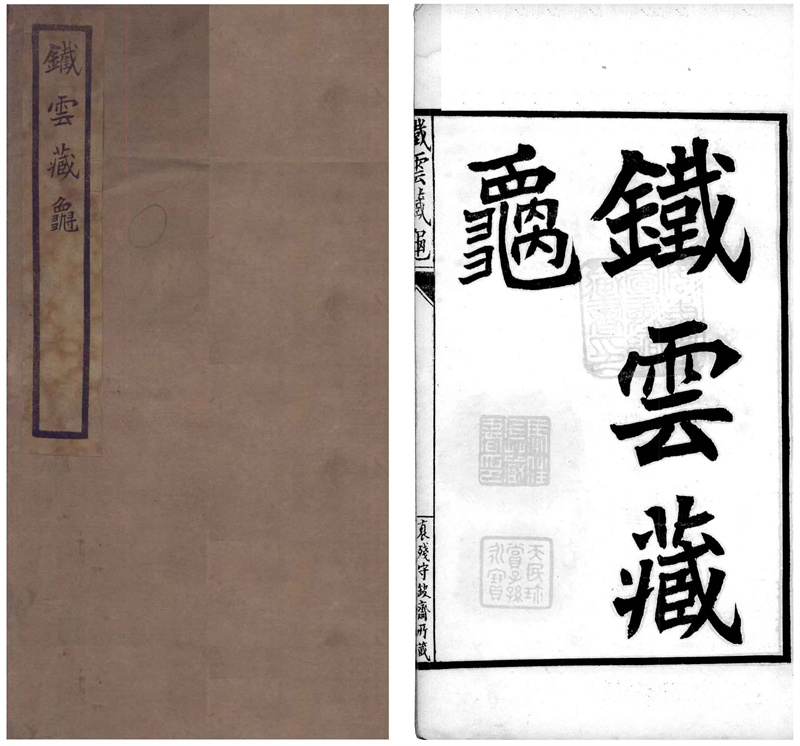 鐵雲藏龜
鐵雲藏
龜
鐵雲藏龜
抱殘守缺齋所藏